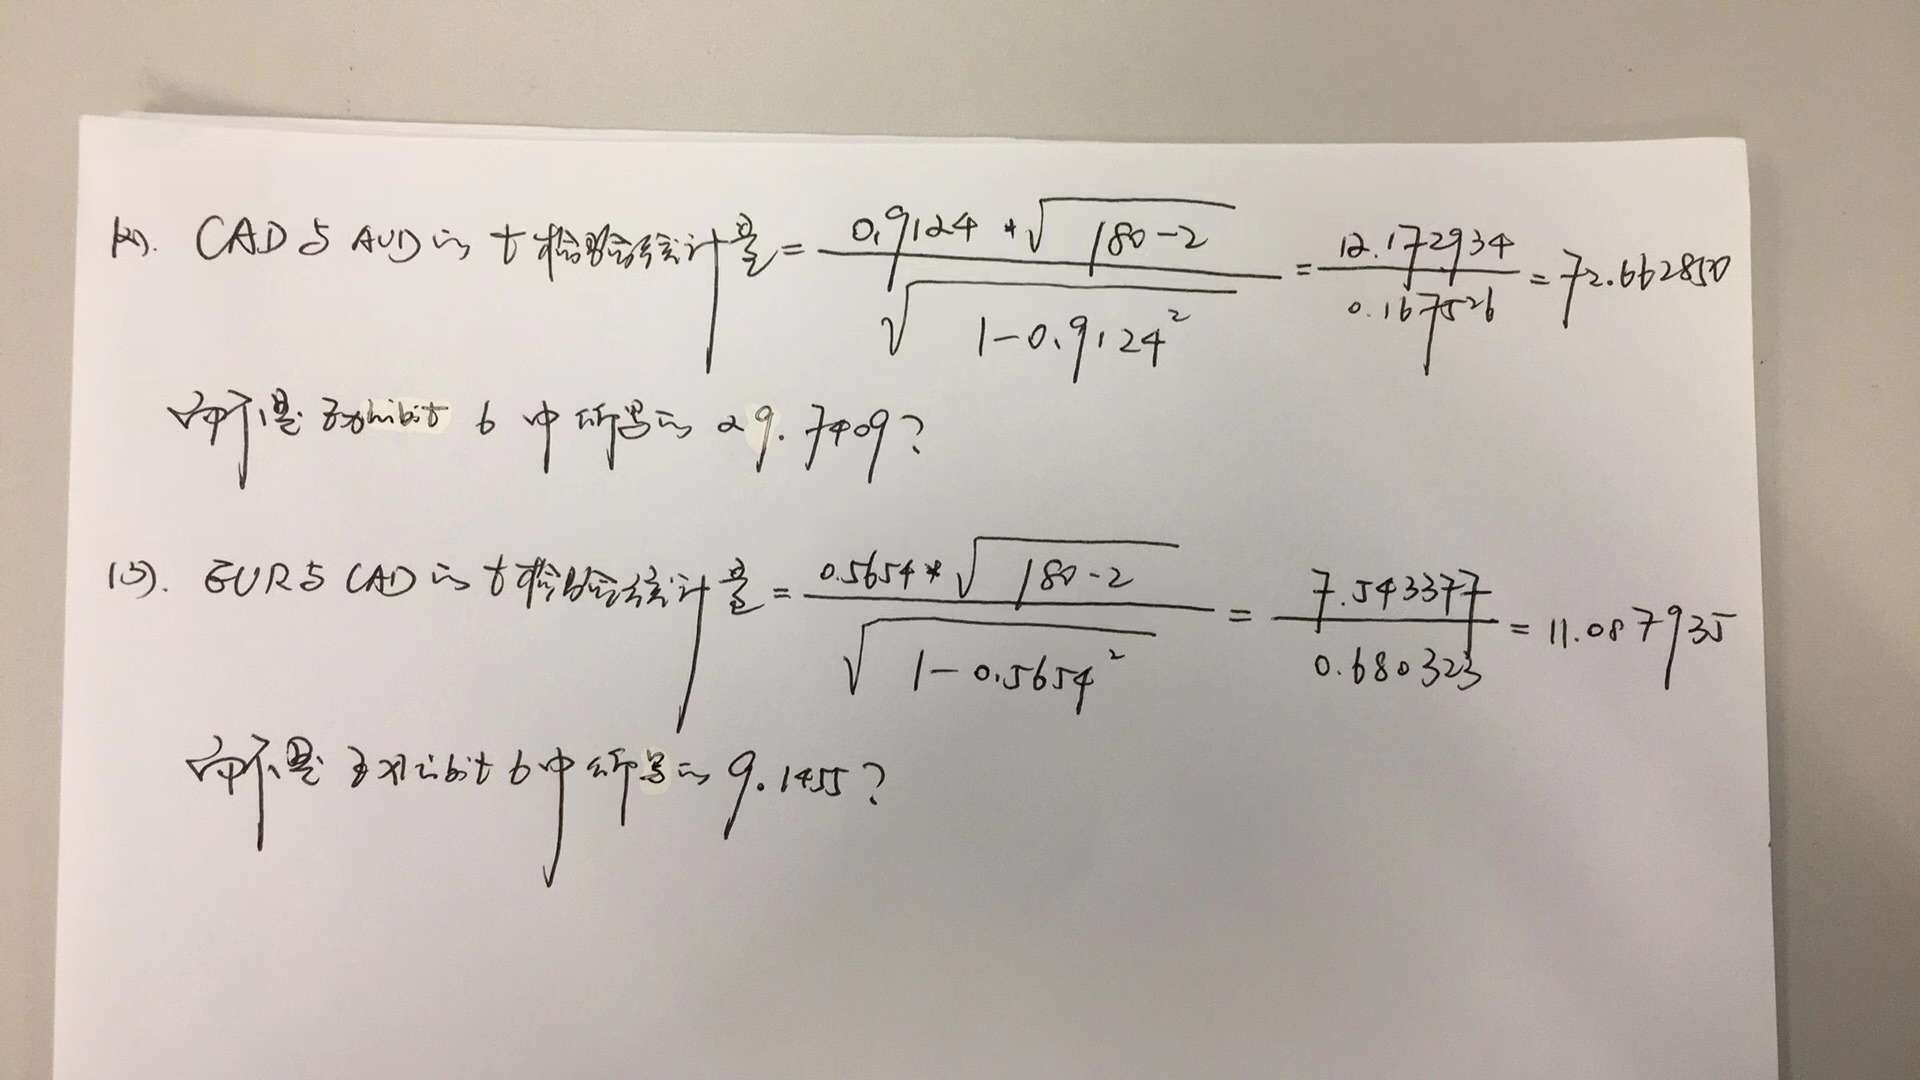 (4). CAD与AUD的t检验统计量 = 0.9124*√(180-2) / √(1-0.9124²) = 12.172934 / 0.167526 = 72.662850
而不是 Exhibit 6 中所写的 29.7409?
(5). EUR与CAD的t检验统计量 = 0.5654*√(180-2) / √(1-0.5654²) = 7.543377 / 0.680323 = 11.087935
而不是 Exhibit 6 中所写的 9.1455?